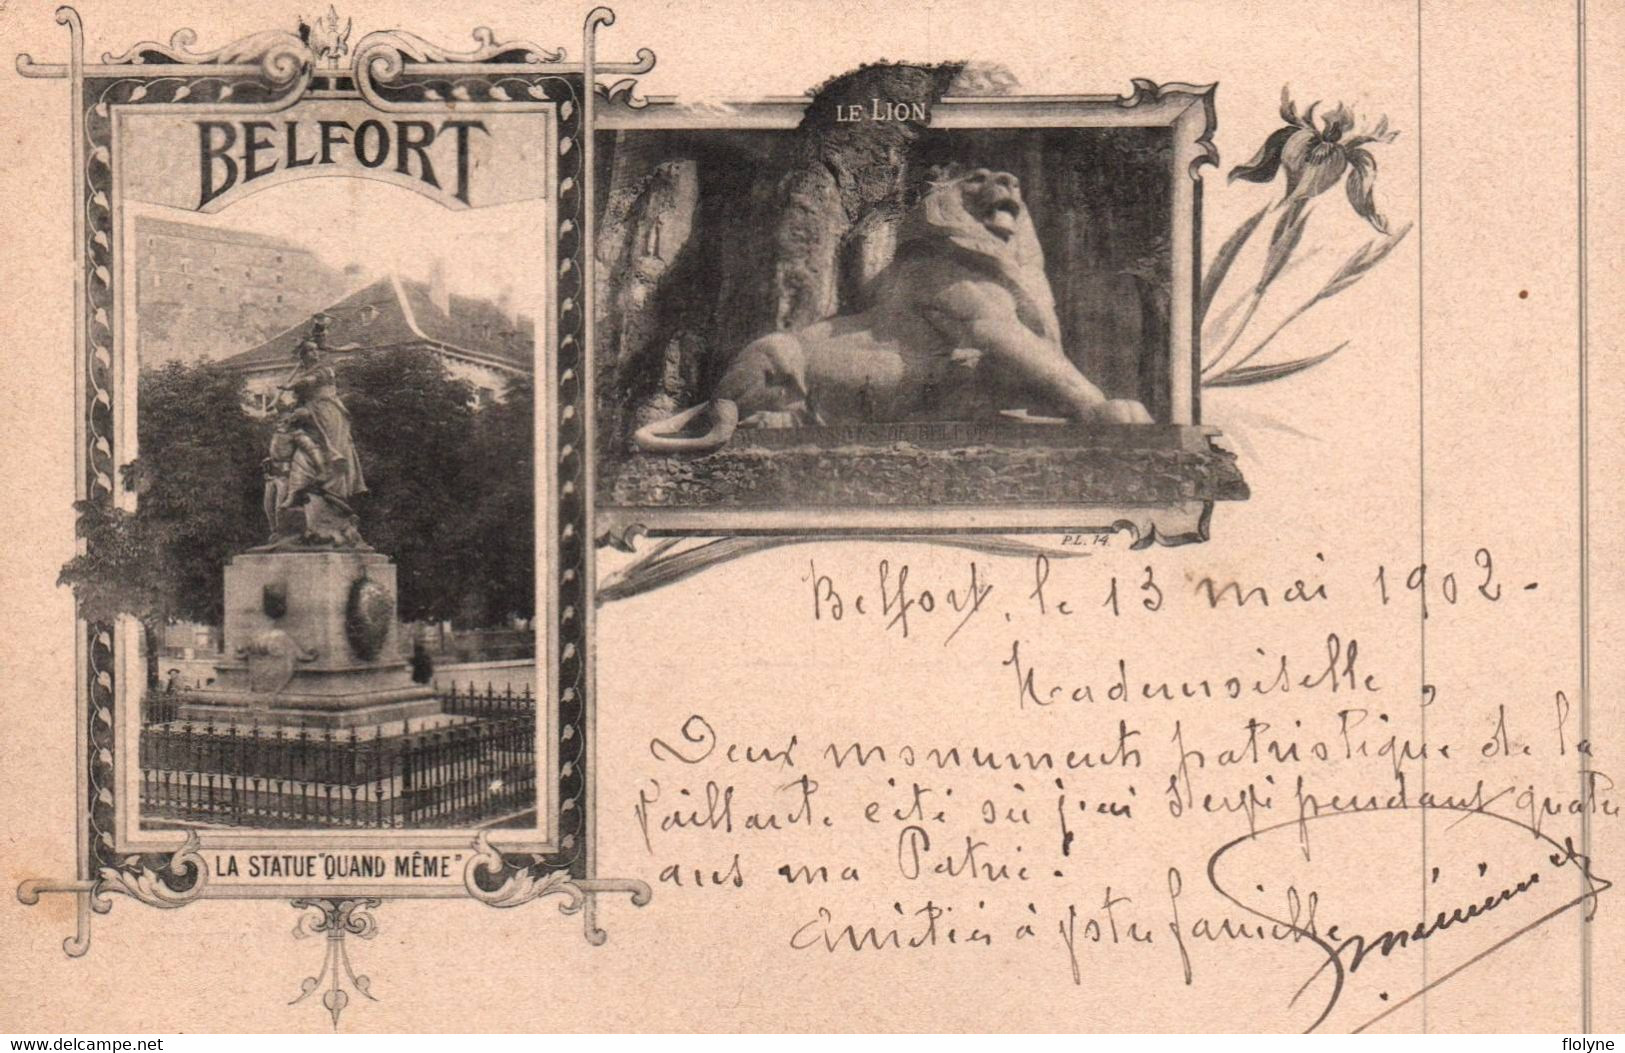 BELFORT
LE LION
AUX DEFENSEURS DE BELFORT
P.L. 14
LA STATUE "QUAND MÊME"
Belfort, le 13 mai 1902 -
Mademoiselle,
Deux monuments patriotique de la
vaillante cité où j'ai servi pendant quatre
ans ma Patrie.
Amitiés à votre famille
delcampe.net
flolyne